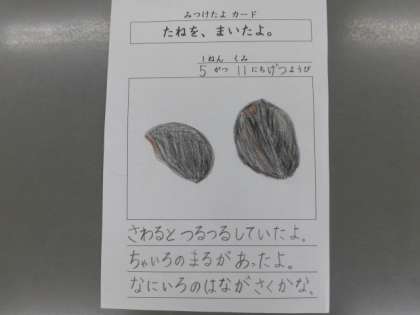 みつけたよ カード
たねを、まいたよ。
1ねん くみ
5がつ 11にちげつようび
さわると つるつるしていたよ。
ちゃいろの まるが あったよ。
なにいろの はなが さくかな。